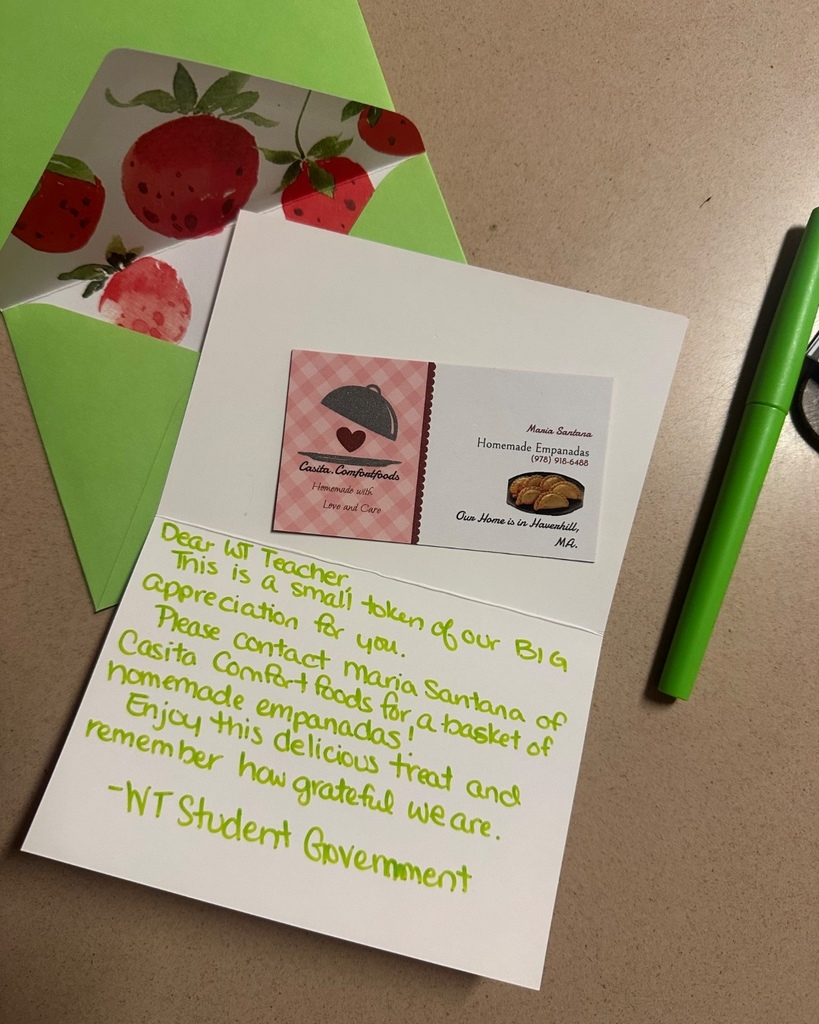 Casita.Comfortfoods
Homemade with
Love and Care
Maria Santana
Homemade Empanadas
(978) 918-6488
Our Home is in Haverhill,
MA.
Dear WT Teacher,
This is a small token of our BIG
appreciation for you.
Please contact Maria Santana of
Casita Comfort foods for a basket of
homemade empanadas!
Enjoy this delicious treat and
remember how grateful we are.
-WT Student Government